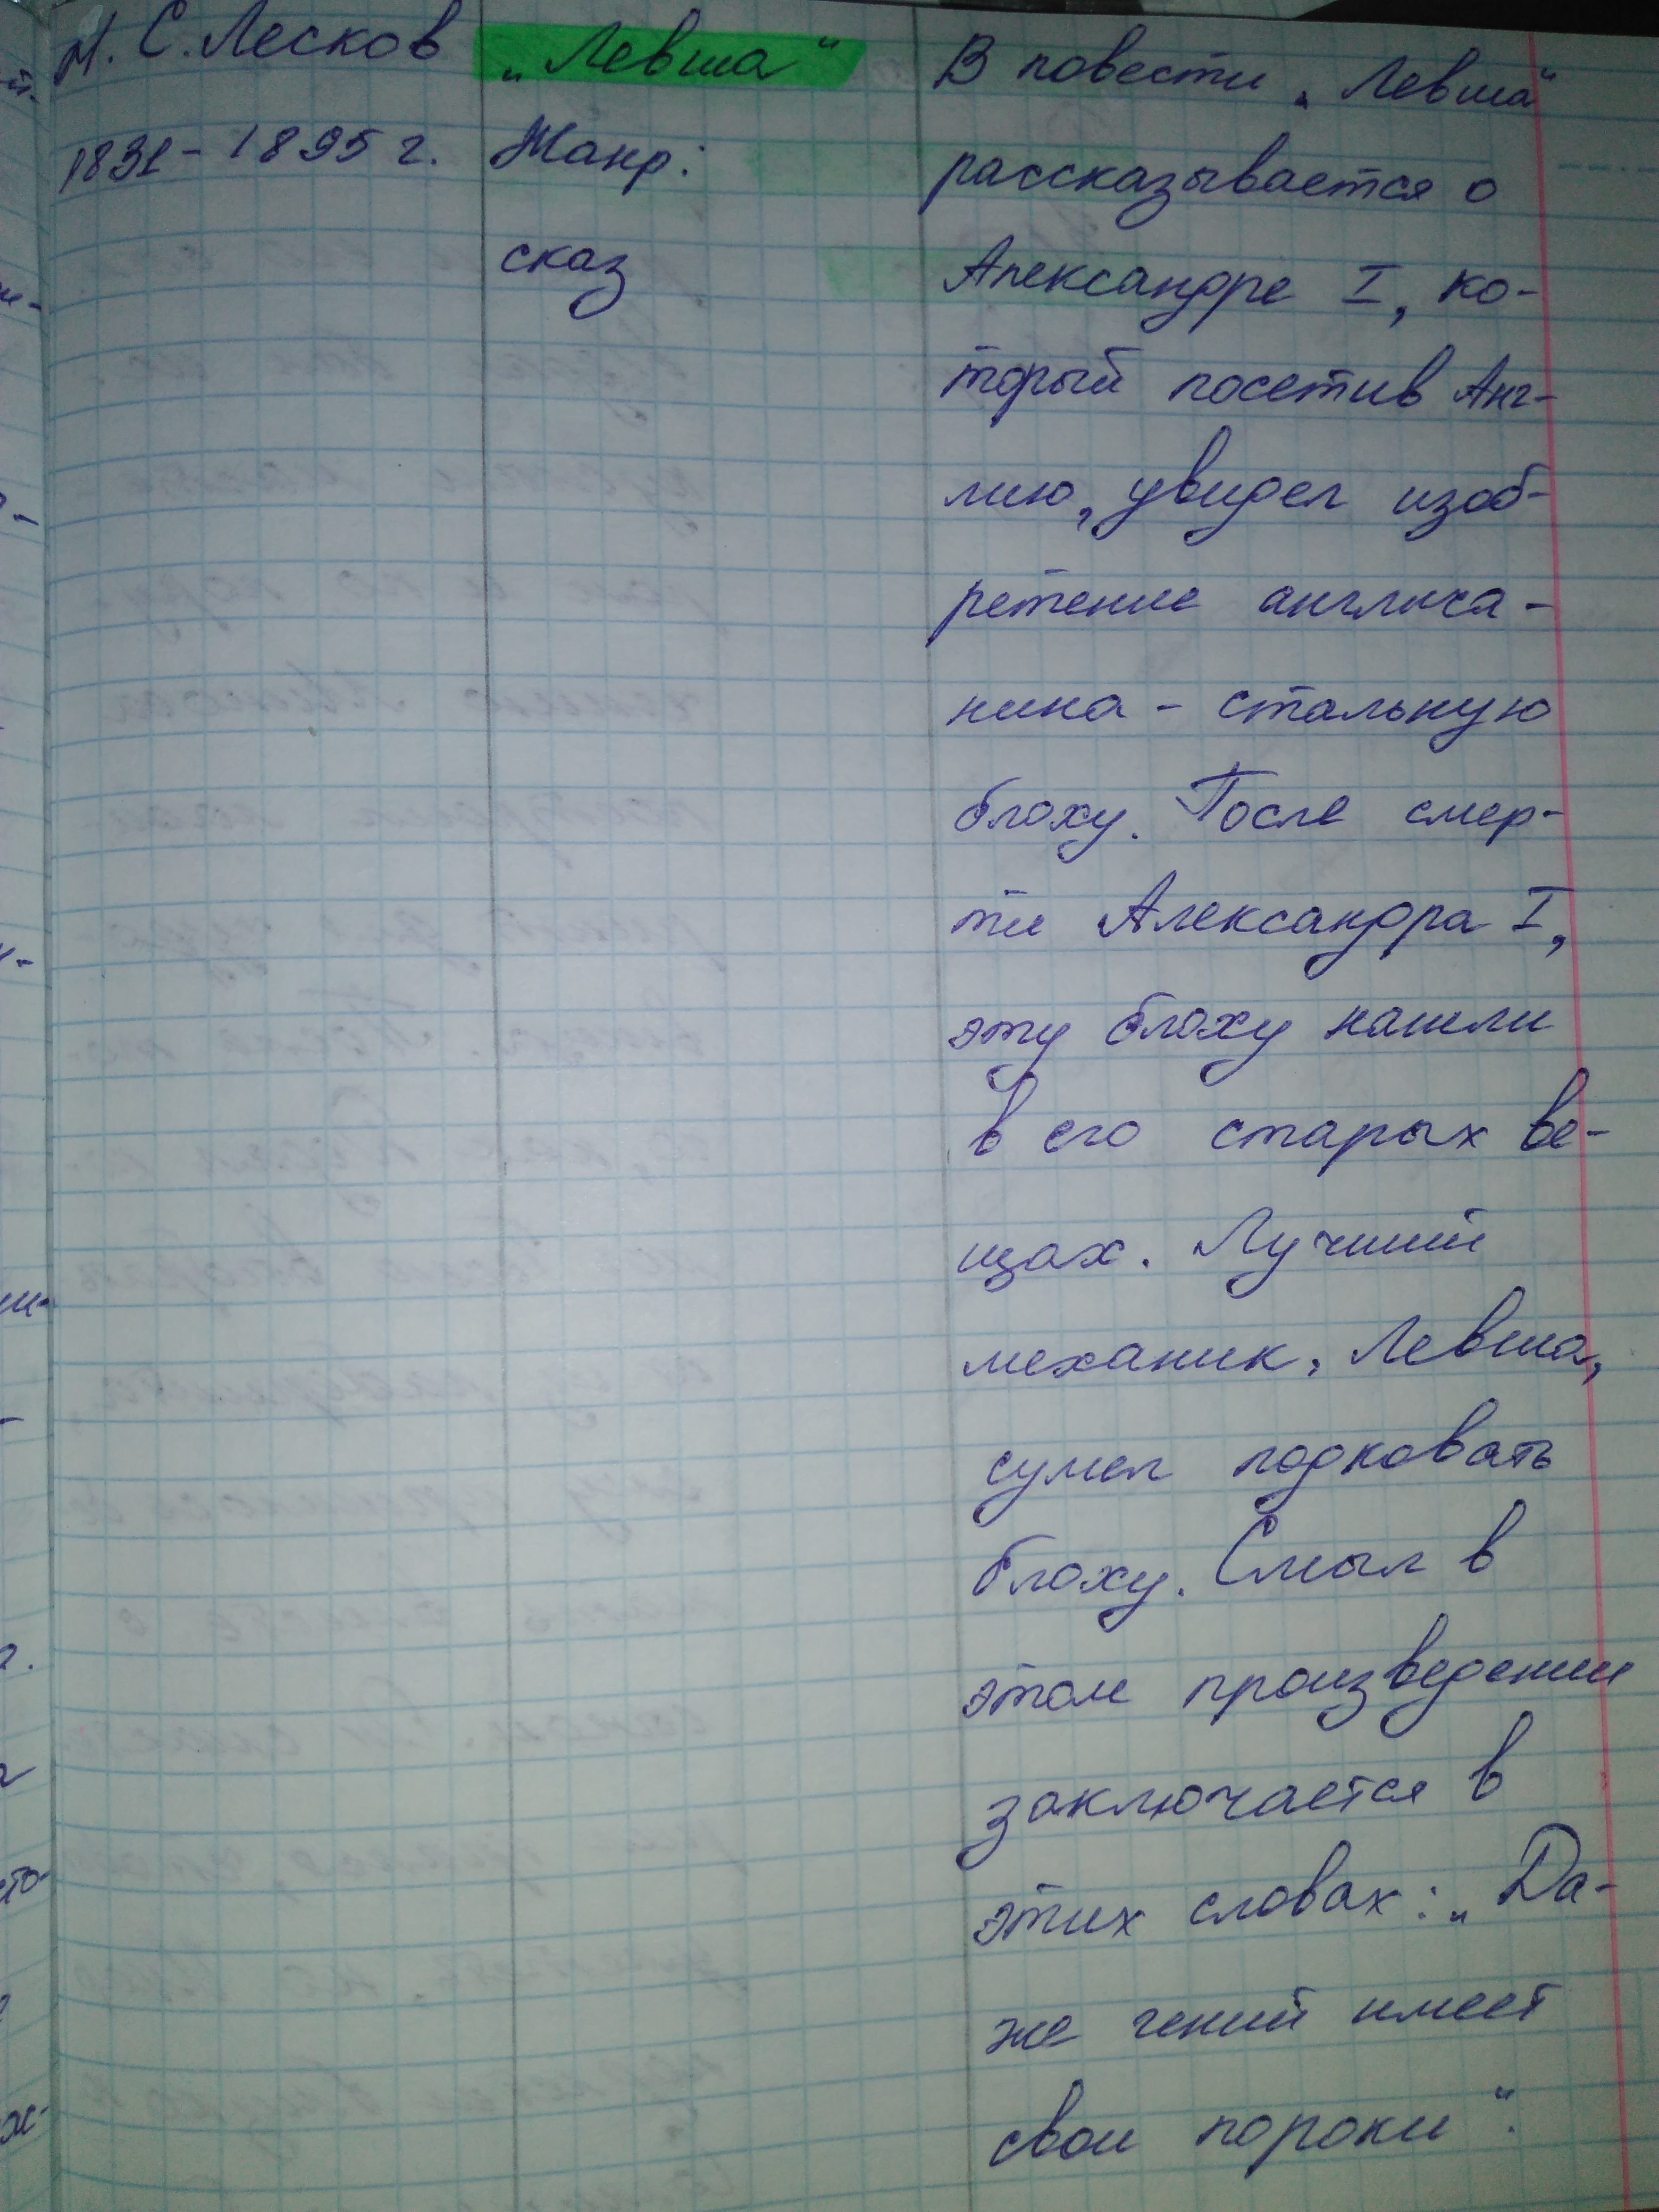 Н. С. Лесков
1831-1895 г.
„Левша“
Жанр:
сказ
В повести „Левша“
рассказывается о
Александре I, ко-
торый посетив Анг-
лию, увидел изоб-
ретение англича-
нина - стальную
блоху. После смер-
ти Александра I,
эту блоху нашли
в его старых ве-
щах. Лучший
механик, Левша,
сумел подковать
блоху. Смыл в
этом произведении
заключается в
этих словах: „Да-
же гений имеет
свои пороки“.